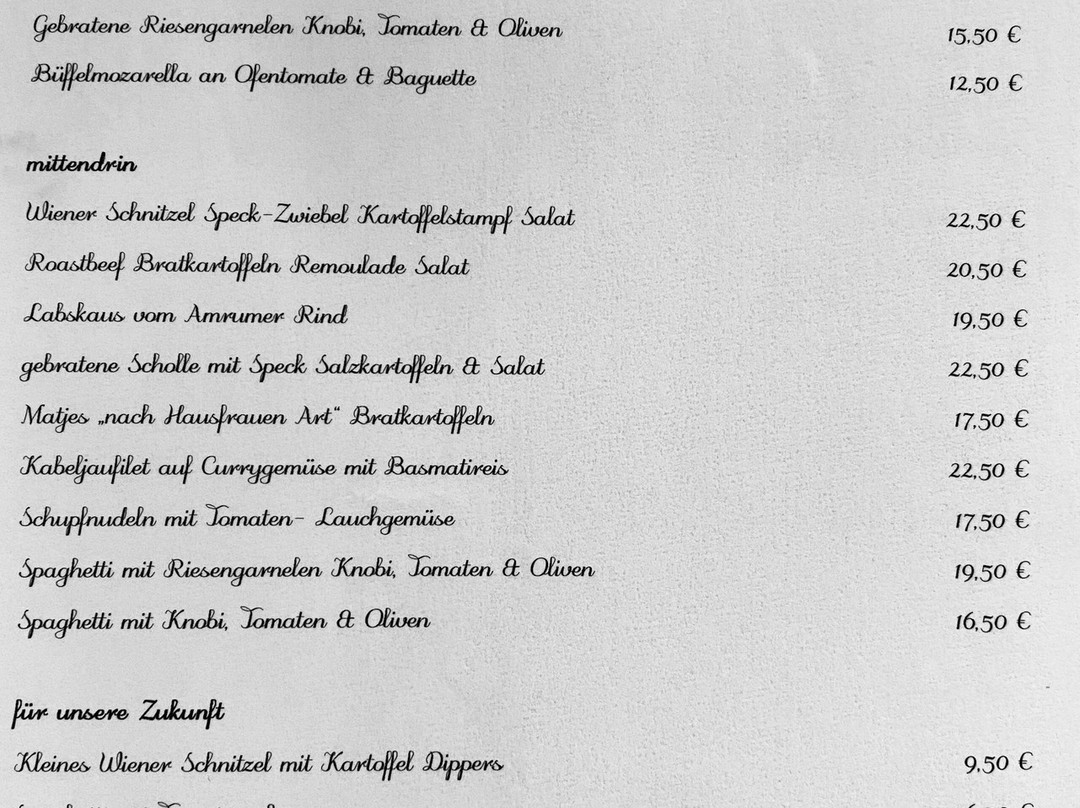 Gebratene Riesengarnelen Knobi, Tomaten & Oliven 15,50 €
Büffelmozarella an Ofentomate & Baguette 12,50 €
mittendrin
Wiener Schnitzel Speck-Zwiebel Kartoffelstampf Salat 22,50 €
Roastbeef Bratkartoffeln Remoulade Salat 20,50 €
Labskaus vom Amrumer Rind 19,50 €
gebratene Scholle mit Speck Salzkartoffeln & Salat 22,50 €
Matjes „nach Hausfrauen Art“ Bratkartoffeln 17,50 €
Kabeljaufilet auf Currygemüse mit Basmatireis 22,50 €
Schupfnudeln mit Tomaten- Lauchgemüse 17,50 €
Spaghetti mit Riesengarnelen Knobi, Tomaten & Oliven 19,50 €
Spaghetti mit Knobi, Tomaten & Oliven 16,50 €
für unsere Zukunft
Kleines Wiener Schnitzel mit Kartoffel Dippers 9,50 €